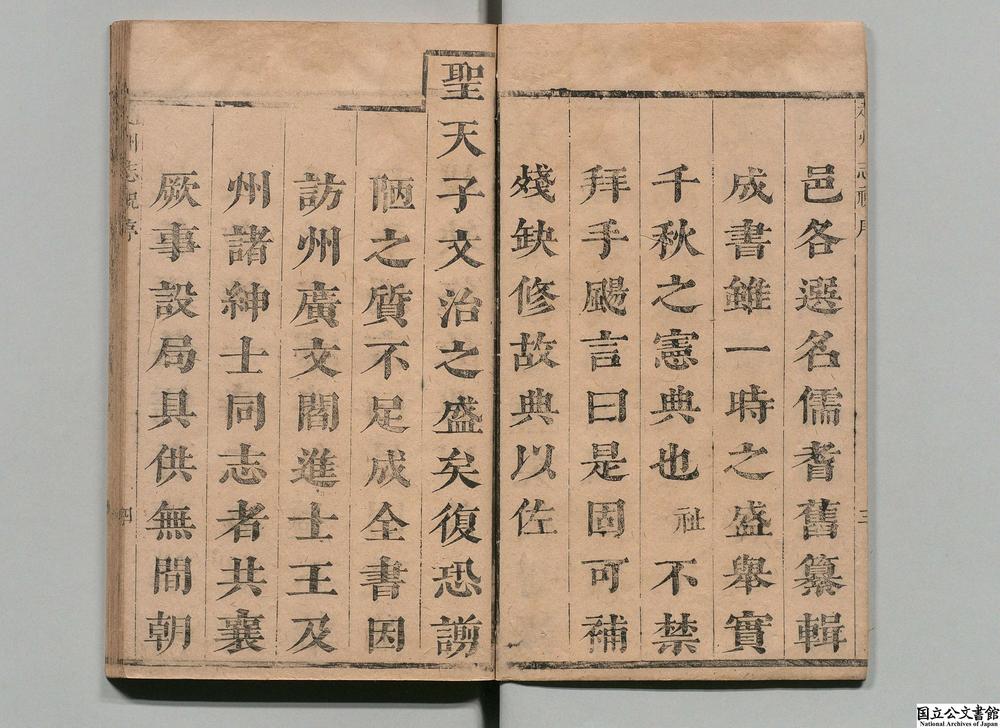 邑各選名儒耆舊纂輯
成書雖一時之盛舉實
千秋之憲典也祉不禁
拜手颺言曰是固可補
殘缺修故典以佐
聖天子文治之盛矣復恐謭
陋之質不足成全書因
訪州廣文閻進士王及
州諸紳士同志者共襄
厥事設局具供無間朝
三
四
国立公文書館
National Archives of Japan